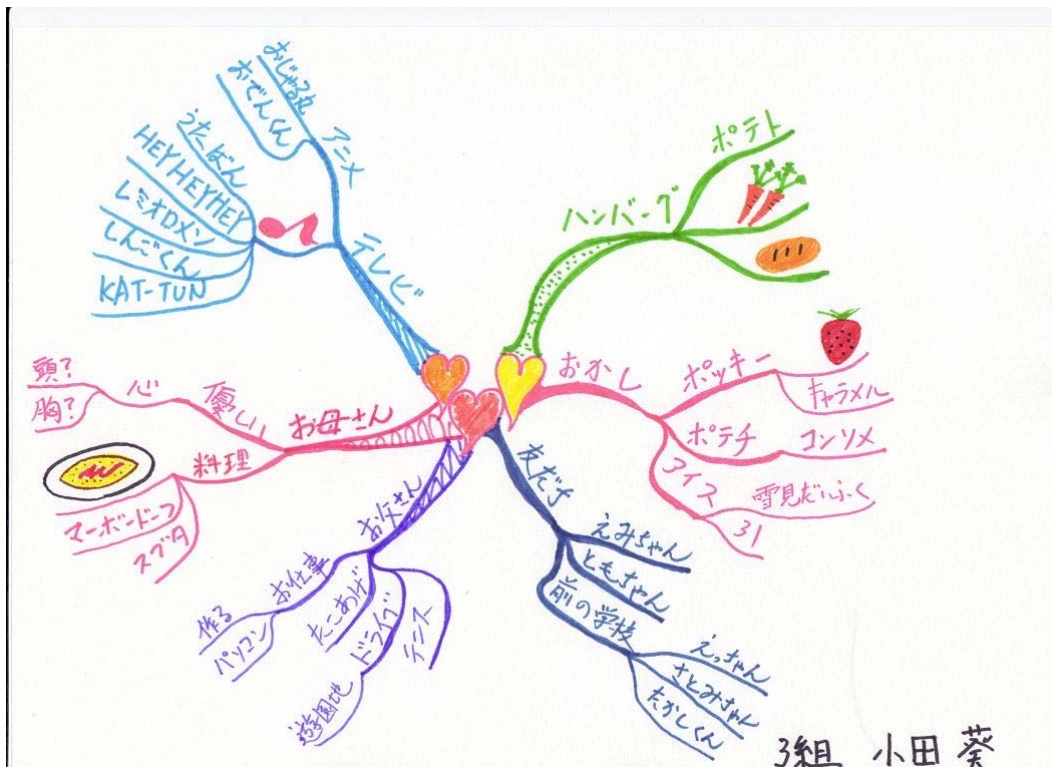 テレビ
アニメ
おじゃる丸
おでんくん
うたばん
HEY HEY HEY
レミオロメン
しんごくん
KAT-TUN
ハンバーグ
ポテト
おかし
ポッキー
キャラメル
ポテチ
コンソメ
アイス
雪見だいふく
31
友だち
えみちゃん
ともちゃん
前の学校
えっちゃん
さとみちゃん
たかしくん
お父さん
お仕事
作る
パソコン
たこあげ
ドライブ
遊園地
テニス
お母さん
優しい
心
頭?
胸?
料理
マーボードーフ
スブタ
3組 小田 葵